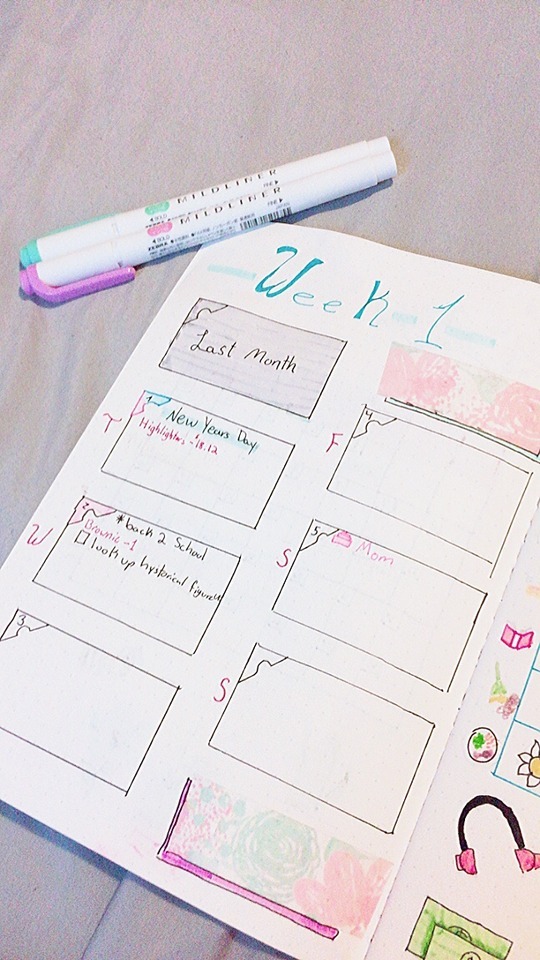 MILDLINER
FINE
BOLD
MILDLINER
FINE
BOLD
ZEBRA
Week 1
Last Month
T
1
New Years Day
Highlighters - $18.12
W
2
*back 2 School
Brownie -1
look up hystorical figures
3
F
4
S
5
Mom
S